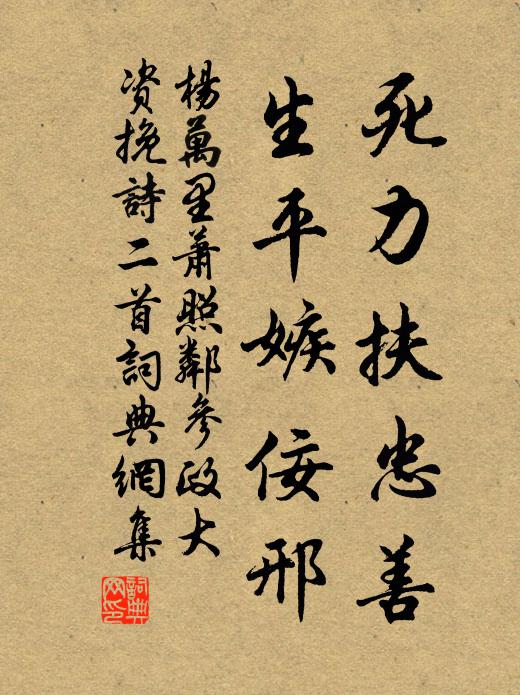 死力扶忠善
生平嫉佞邢
楊萬里蕭照鄰參政大
资挽詩二首詞典網集
詞典
网印